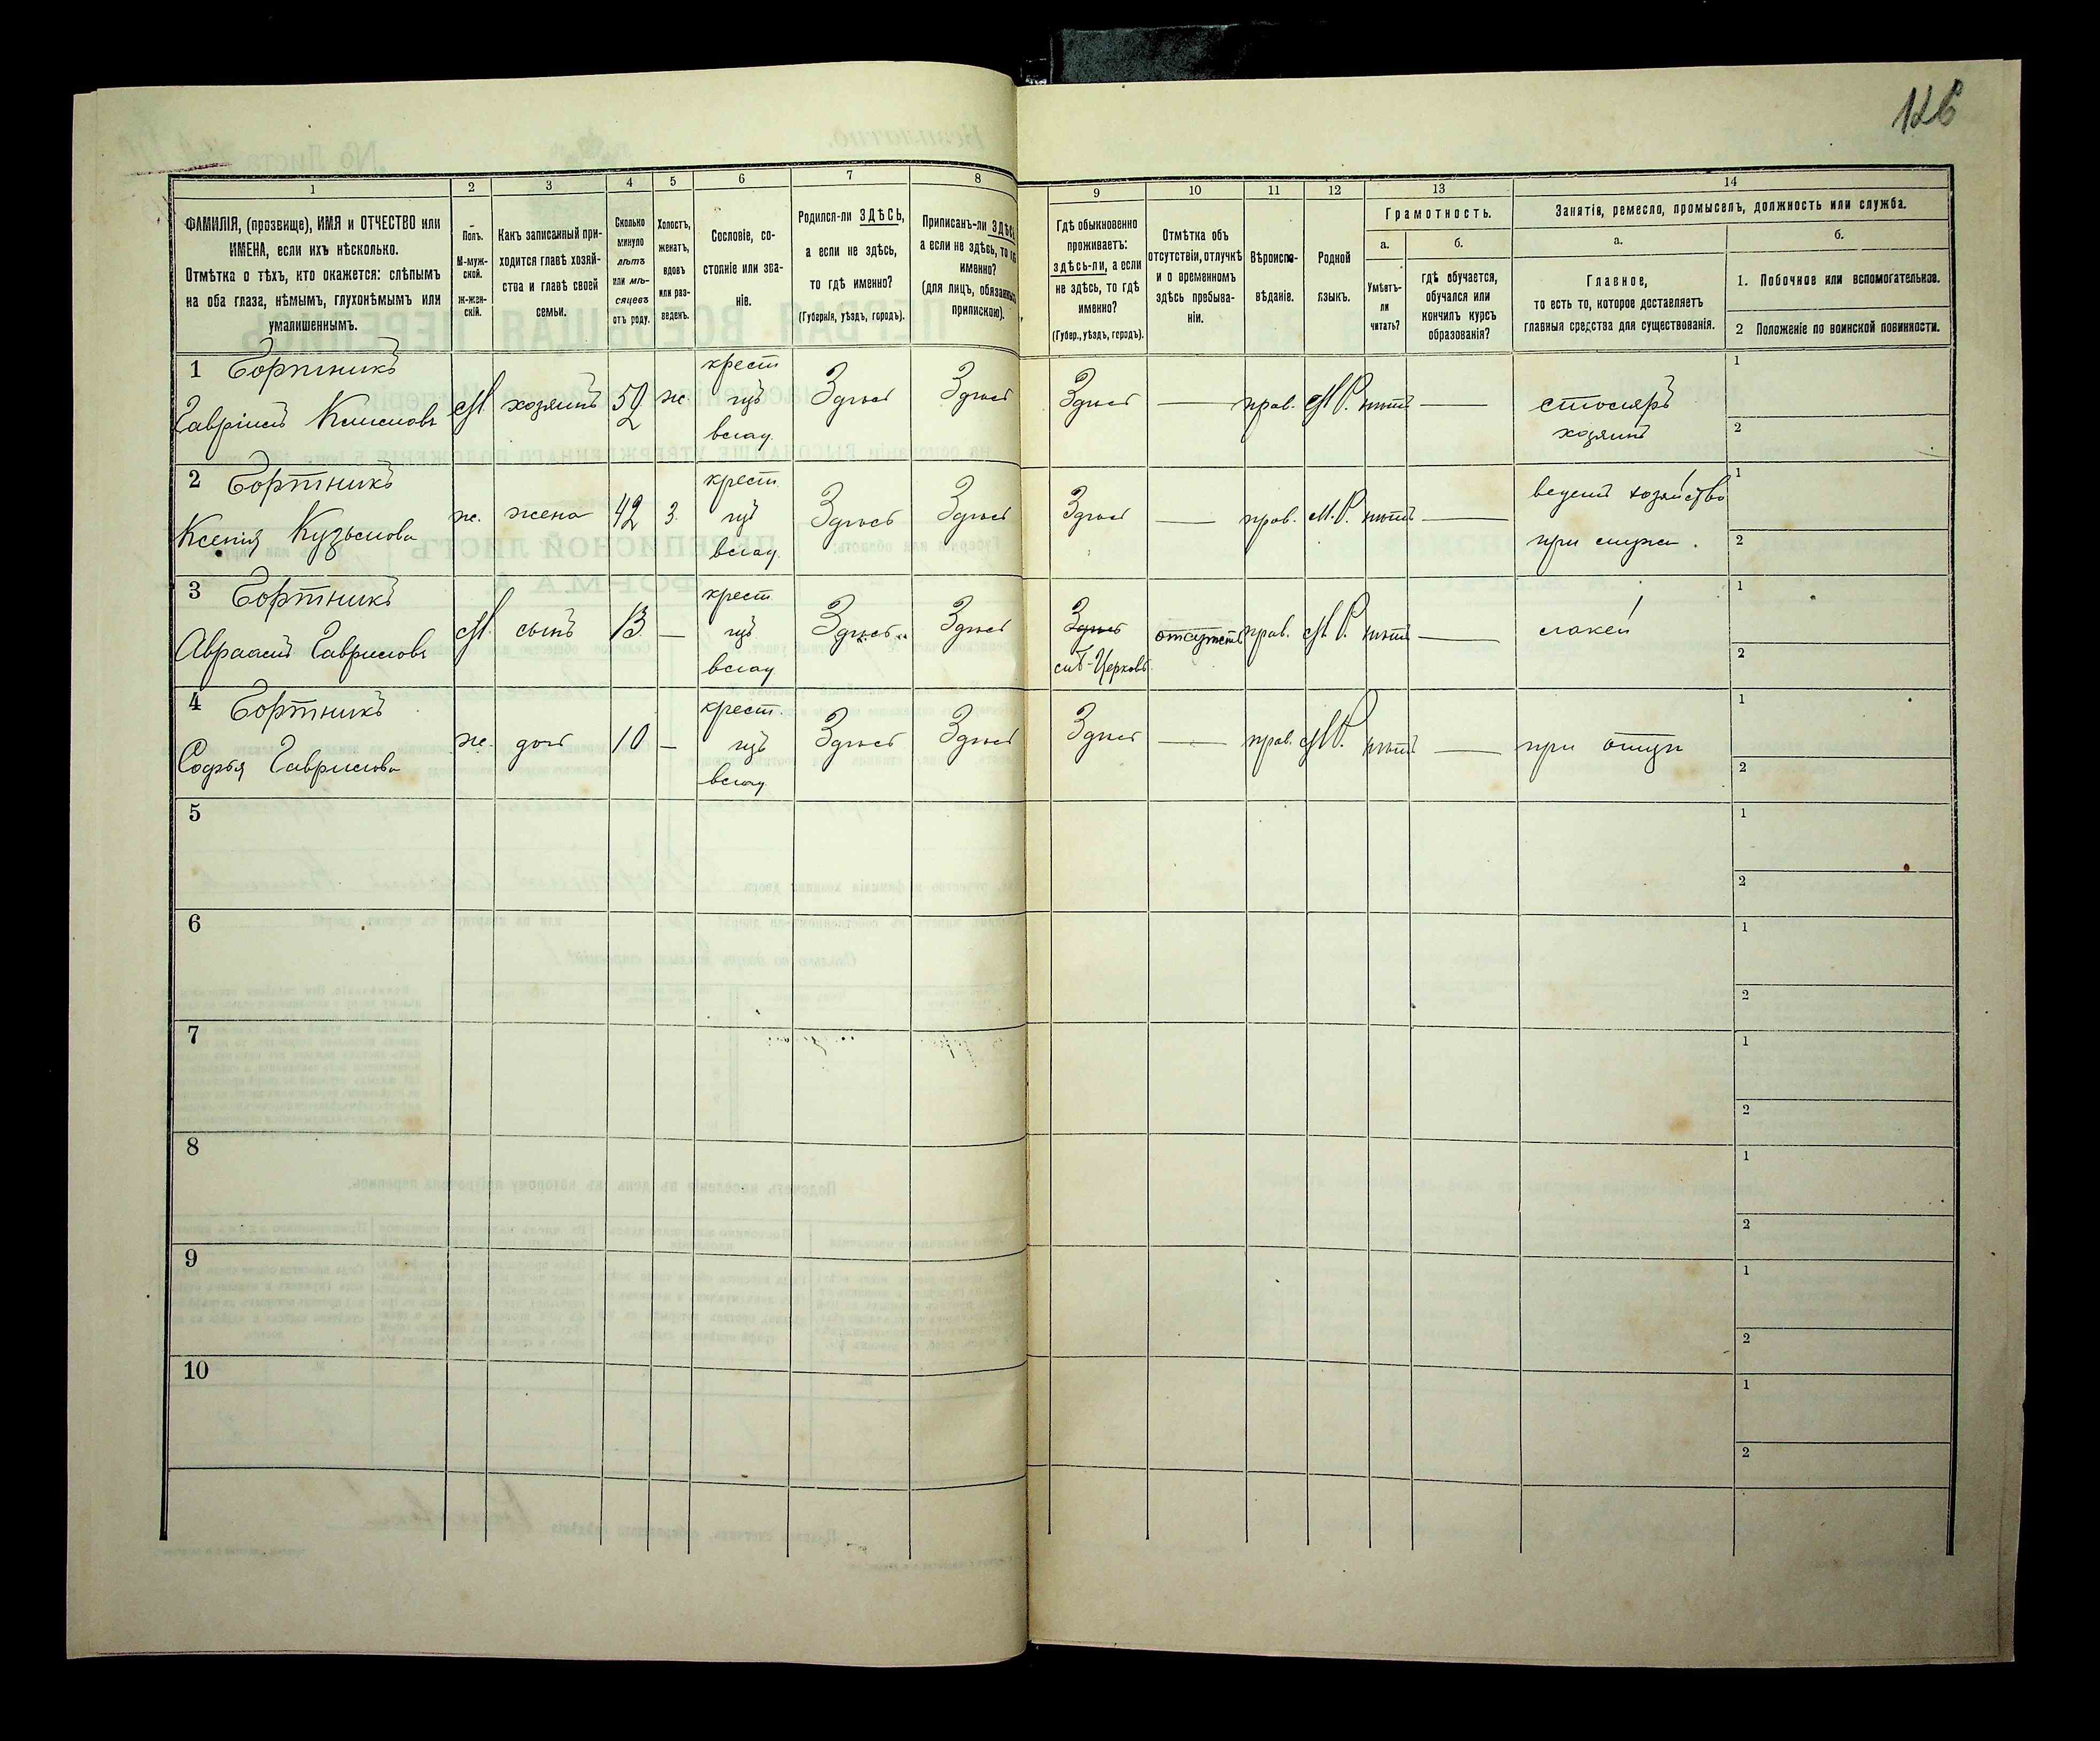 126
1 2 3 4 5 6 7 8 9 10 11 12 13 14
ФАМИЛІЯ, (прозвище), ИМЯ и ОТЧЕСТВО или
ИМЕНА, если ихъ нѣсколько.
Отмѣтка о тѣхъ, кто окажется: слѣпымъ
на оба глаза, нѣмымъ, глухонѣмымъ или
умалишеннымъ.
Полъ.
М-муж-
ской.
ж-жен-
скій.
Какъ записанный при-
ходится главѣ хозяй-
ства и главѣ своей
семьи.
Сколько
минуло
лѣтъ
или мѣ-
сяцевъ
отъ роду.
Холостъ,
женатъ,
вдовъ
или раз-
веденъ.
Сословіе, со-
стояніе или зва-
ніе.
Родился-ли ЗДѢСЬ,
а если не здѣсь,
то гдѣ именно?
(Губернія, уѣздъ, городъ).
Приписанъ-ли ЗДѢСЬ
а если не здѣсь, то гдѣ
именно?
(для лицъ, обязанныхъ
припискою).
Гдѣ обыкновенно
проживаетъ:
здѣсь-ли, а если
не здѣсь, то гдѣ
именно?
(Губер., уѣздъ, городъ).
Отмѣтка объ
отсутствіи, отлучкѣ
и о временномъ
здѣсь пребыва-
ніи.
Вѣроиспо-
вѣданіе.
Родной
языкъ.
Грамотность.
а.
Умѣетъ-
ли
читать?
б.
гдѣ обучается,
обучался или
кончилъ курсъ
образованія?
Занятія, ремесло, промыселъ, должность или служба.
а.
Главное,
то есть то, которое доставляетъ
главныя средства для существованія.
б.
1. Побочное или вспомогательное.
2 Положеніе по воинской повинности.
1 Бортникъ
Гавріилъ Климовъ М хозяинъ 52 ж. крест. изъ влад. Здѣсь Здѣсь Здѣсь — прав. М.Р. нѣтъ — столяръ
хозяинъ
1
2
2 Бортникъ
Ксенія Кузьмова ж. жена 42 З. крест. изъ влад. Здѣсь Здѣсь Здѣсь — прав. М.Р. нѣтъ — ведетъ хозяйство
при мужѣ.
1
2
3 Бортникъ
Авраамъ Гавриловъ М. сынъ 13 — крест. изъ влад. Здѣсь Здѣсь Здѣсь
отсутств. прав. М.Р. нѣтъ — лакей
1
2
4 Бортникъ
Софья Гаврилова ж. дочь 10 — крест. изъ влад. Здѣсь Здѣсь Здѣсь — прав. М.Р. нѣтъ — при отцѣ
1
2
5
1
2
6
1
2
7
1
2
8
1
2
9
1
2
10
1
2